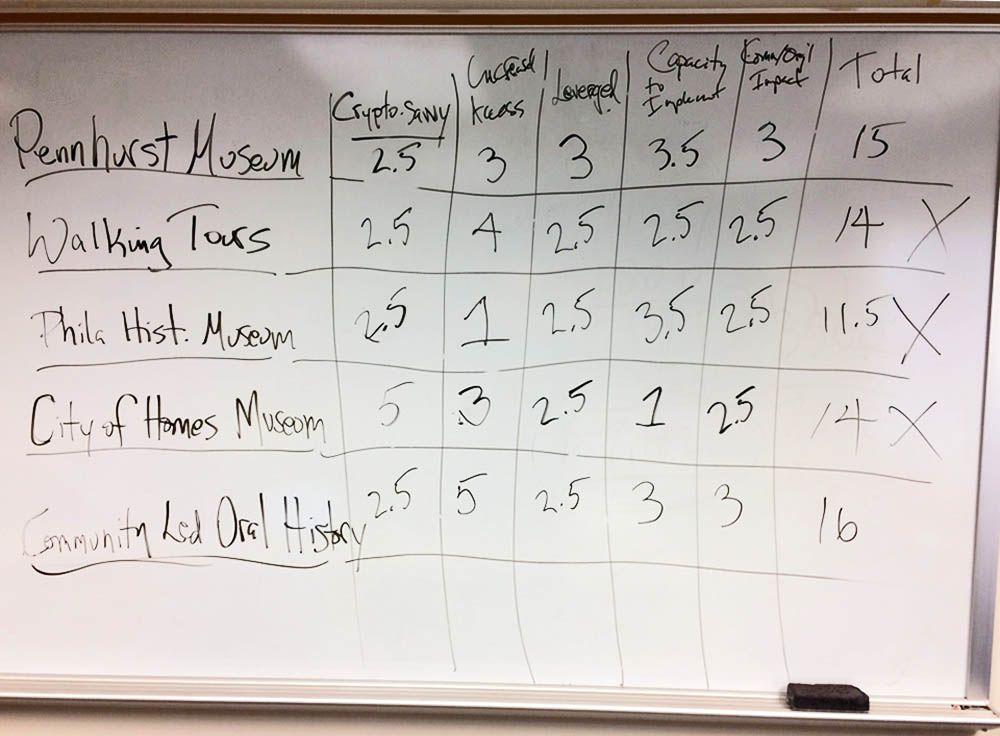 Crypto-Savvy Increased Access Leverage? Capacity to Implement Comm/Org'l Impact Total
Pennhurst Museum 2.5 3 3 3.5 3 15
Walking Tours 2.5 4 2.5 2.5 2.5 14 X
Phila Hist. Museum 2.5 1 2.5 3.5 2.5 11.5 X
City of Homes Museum 5 3 2.5 1 2.5 14 X
Community Led Oral History 2.5 5 2.5 3 3 16